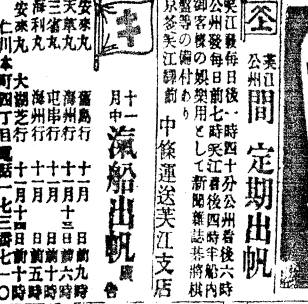 仝
芙江
公州
間 定期出帆
芙江發每日後一時四十分公州着後六時
公州發每日前七時芙江着後四時半船內
御客様の娯樂用として新聞雜誌碁將棋
盤等の備付あり
京釜芙江驛前
中條運送芙江支店
キ
十一
月中
滊船出帆
廣告
安來丸
舊島行
十一月
日前九時
天草丸
海州行
十一月十三日前六時
三省丸
屯串行
十一月
日前十時
海利丸
海州行
十一月
日前五時
安來丸
大湖芝行
十一月十四日前十時
仁川本町四丁目電話一七三番七一〇